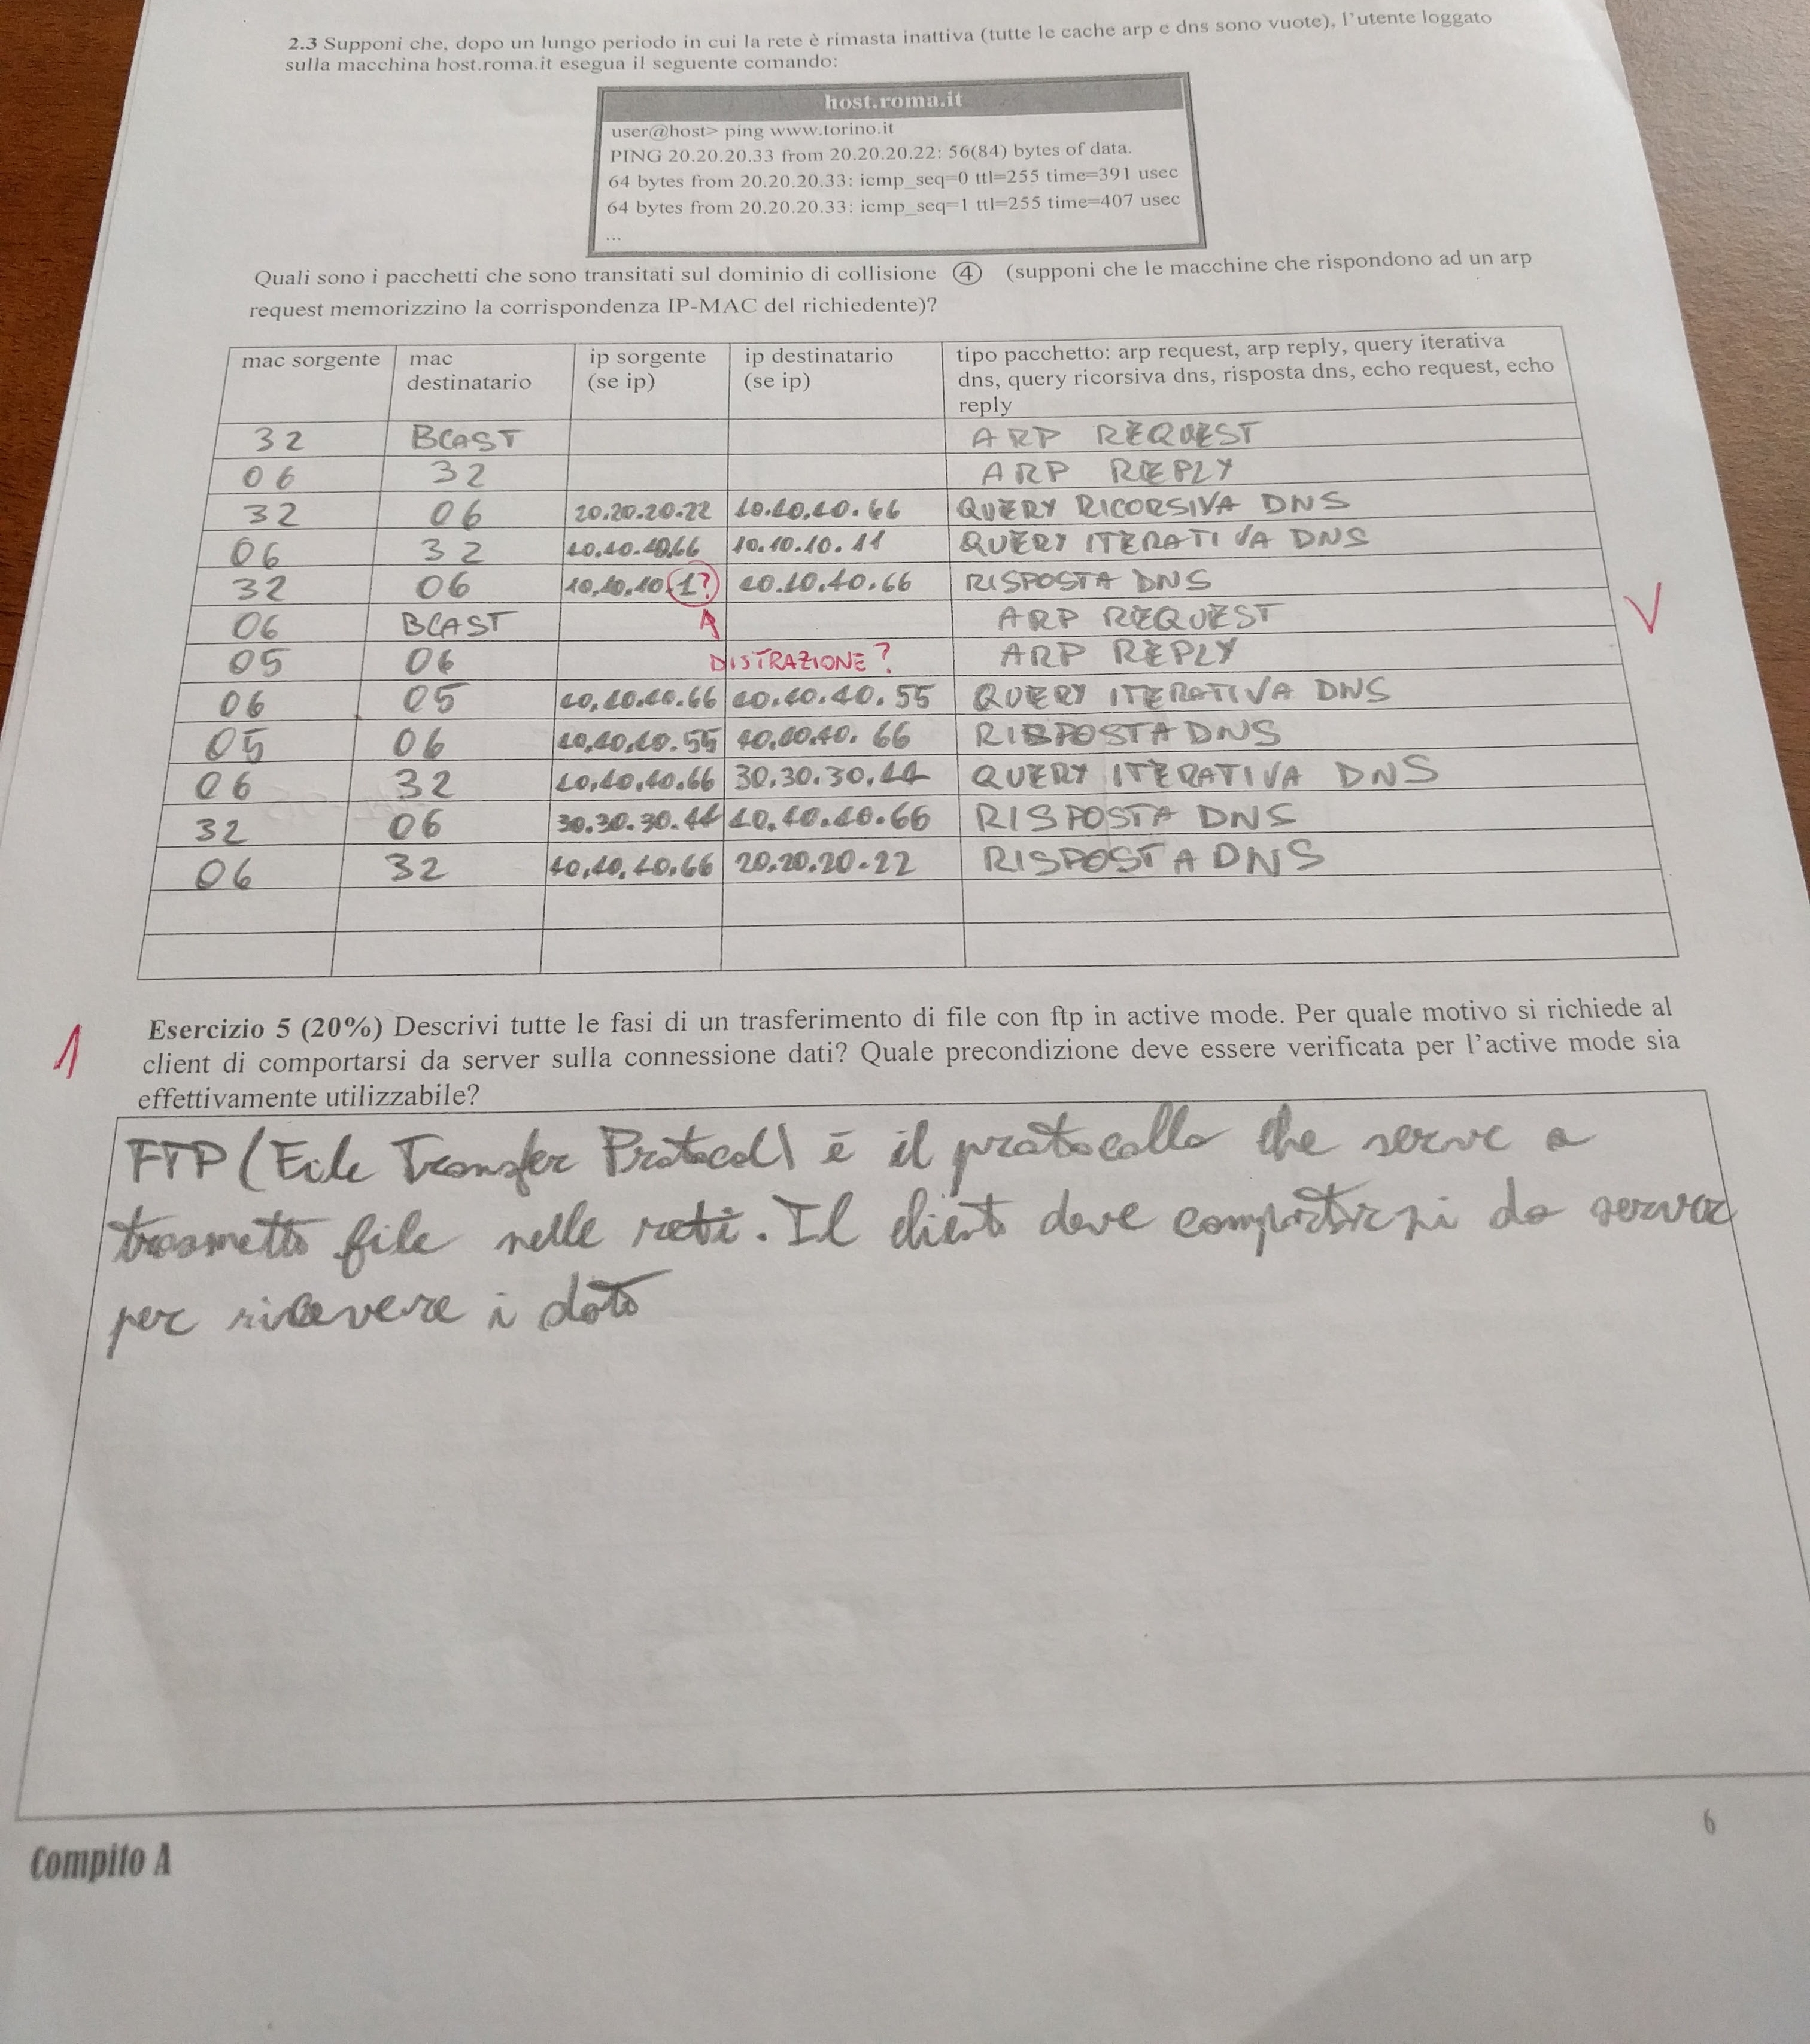 2.3 Supponi che, dopo un lungo periodo in cui la rete è rimasta inattiva (tutte le cache arp e dns sono vuote), l'utente loggato
sulla macchina host.roma.it esegua il seguente comando:
host.roma.it
user@host> ping www.torino.it
PING 20.20.20.33 from 20.20.20.22: 56(84) bytes of data.
64 bytes from 20.20.20.33: icmp_seq=0 ttl=255 time=391 usec
64 bytes from 20.20.20.33: icmp_seq=1 ttl=255 time=407 usec
...
Quali sono i pacchetti che sono transitati sul dominio di collisione ④ (supponi che le macchine che rispondono ad un arp
request memorizzino la corrispondenza IP-MAC del richiedente)?
mac sorgente mac destinatario ip sorgente (se ip) ip destinatario (se ip) tipo pacchetto: arp request, arp reply, query iterativa
dns, query ricorsiva dns, risposta dns, echo request, echo
reply
32 BCAST ARP REQUEST
06 32 ARP REPLY
32 06 20.20.20.22 10.10.10.66 QUERY RICORSIVA DNS
06 32 10.10.10.66 10.10.10.11 QUERY ITERATIVA DNS
32 06 10.10.10.1? 10.10.10.66 RISPOSTA DNS
06 BCAST ARP REQUEST
DISTRAZIONE?
05 06 ARP REPLY
06 05 10.10.10.66 10.10.10.55 QUERY ITERATIVA DNS
05 06 10.10.10.55 10.10.10.66 RISPOSTA DNS
06 32 10.10.10.66 30.30.30.44 QUERY ITERATIVA DNS
32 06 30.30.30.44 10.10.10.66 RISPOSTA DNS
06 32 10.10.10.66 20.20.20.22 RISPOSTA DNS
V
1
Esercizio 5 (20%) Descrivi tutte le fasi di un trasferimento di file con ftp in active mode. Per quale motivo si richiede al
client di comportarsi da server sulla connessione dati? Quale precondizione deve essere verificata per l'active mode sia
effettivamente utilizzabile?
FTP (File Transfer Protocol) è il protocollo che serve a
trasmette file nelle reti. Il client deve comportarsi da server
per ricevere i dato
6
Compito A